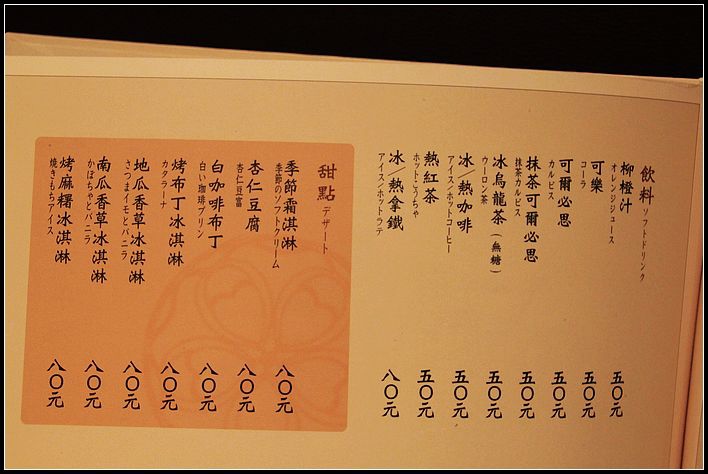 飲料 ソフトドリンク
柳橙汁 五〇元
オレンジジュース
可樂 五〇元
コーラ
可爾必思 五〇元
カルピス
抹茶可爾必思 五〇元
抹茶カルピス
冰烏龍茶(無糖) 五〇元
ウーロン茶
冰/熱咖啡 五〇元
アイス/ホットコーヒー
熱紅茶 五〇元
ホットこうちゃ
冰/熱拿鐵 八〇元
アイス/ホットラテ
甜點 デザート
季節霜淇淋 八〇元
季節のソフトクリーム
杏仁豆腐 八〇元
杏仁豆富
白咖啡布丁 八〇元
白い珈琲プリン
烤布丁冰淇淋 八〇元
カタラーナ
地瓜香草冰淇淋 八〇元
さつまイモとバニラ
南瓜香草冰淇淋 八〇元
かぼちゃとバニラ
烤麻糬冰淇淋 八〇元
焼きもちアイス